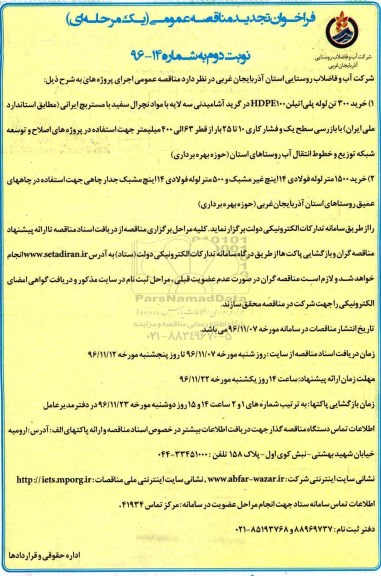 فراخوان تجدید مناقصه عمومی (یک مرحله ای)
نوبت دوم به شماره ۱۴-۹۶
شرکت آب و فاضلاب روستایی
آذربایجان غربی
شرکت آب و فاضلاب روستایی استان آذربایجان غربی در نظر دارد مناقصه عمومی اجرای پروژه های به شرح ذیل:
۱) خرید ۳۰۰ تن لوله پلی اتیلن HDPE۱۰۰ در گرید آشامیدنی سه لایه با مواد نچرال سفید با مستربچ ایرانی (مطابق استاندارد
ملی ایران) با بازرسی سطح یک و فشار کاری ۱۰ تا ۲۵ بار از قطر ۶۳ الی ۴۰۰ میلیمتر جهت استفاده در پروژه های اصلاح و توسعه
شبکه توزیع و خطوط انتقال آب روستاهای استان (حوزه بهره برداری)
۲) خرید ۱۵۰۰ متر لوله فولادی ۱۴ اینچ غیر مشبک و ۵۰۰ متر لوله فولادی ۱۴ اینچ مشبک جدار چاهی جهت استفاده در چاههای
عمیق روستاهای استان آذربایجان غربی (حوزه بهره برداری)
را از طریق سامانه تدارکات الکترونیکی دولت برگزار نماید. کلیه مراحل برگزاری مناقصه از دریافت اسناد مناقصه تا ارائه پیشنهاد
مناقصه گران و بازگشایی پاکت ها از طریق درگاه سامانه تدارکات الکترونیکی دولت (ستاد) به آدرس www.setadiran.ir انجام
خواهد شد و لازم است مناقصه گران در صورت عدم عضویت قبلی، مراحل ثبت نام در سایت مذکور و دریافت گواهی امضای
الکترونیکی را جهت شرکت در مناقصه محقق سازند.
تاریخ انتشار مناقصات در سامانه مورخه ۹۶/۱۱/۰۷ می باشد.
زمان دریافت اسناد مناقصه از سایت: روز شنبه مورخه ۹۶/۱۱/۰۷ تا روز پنجشنبه مورخه ۹۶/۱۱/۱۲
مهلت زمان ارائه پیشنهاد: ساعت ۱۴ روز یکشنبه مورخه ۹۶/۱۱/۲۲
زمان بازگشایی پاکتها: به ترتیب شماره های ۱ و ۲ ساعت ۱۴ و ۱۵ روز دوشنبه مورخه ۹۶/۱۱/۲۳ در دفتر مدیر عامل
اطلاعات تماس دستگاه مناقصه گذار جهت دریافت اطلاعات بیشتر در خصوص اسناد مناقصه و ارائه پاکتهای الف: آدرس: ارومیه
خیابان شهید بهشتی - نبش کوی اول - پلاک ۱۵۸ تلفن: ۳۳۴۵۱۰۰۰-۰۴۴
نشانی سایت اینترنتی شرکت: www.abfar-wazar.ir، نشانی سایت اینترنتی ملی مناقصات: http://iets.mporg.ir
اطلاعات تماس سامانه ستاد جهت انجام مراحل عضویت در سامانه: مرکز تماس ۴۱۹۳۴.
دفتر ثبت نام: ۸۸۹۶۹۷۳۷ و ۸۵۱۹۳۷۶۸-۰۲۱
اداره حقوقی و قراردادها
ParsNamadData
۰۲۱-۸۸۳۴۹۶۷۰-۵